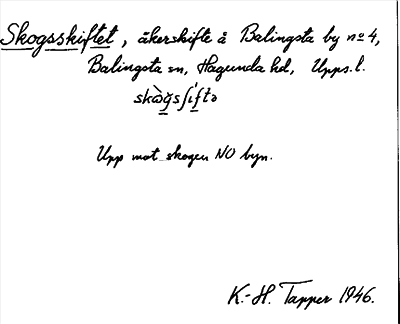 Skogsskiftet, åkerskifte å Balingsta by nº 4,
Balingsta sn, Hagunda hd, Upps. l.
Upp mot skogen NO byn.
K.-H. Tapper 1946.